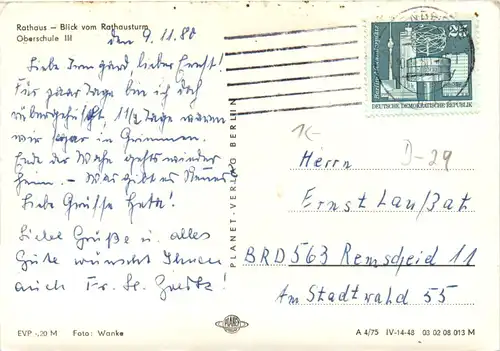 Rathaus – Blick vom Rathausturm
Oberschule III
den 9.11.80
Liebe Irmgard, lieber Ernst!
Für paar Tage bin ich doch
rübergehuscht, 11/2 Tage waren
wir sogar in Grimmen.
Ende der Woche gehts wieder
heim. – Was gibt es Neues?
Liebe Grüsse
Liebe Grüße u. alles
Gute wünscht Ihnen
auch Fr. 
EVP -,20 M Foto: Wanke
PLANET-VERLAG BERLIN
PLANET
25
DEUTSCHE DEMOKRATISCHE REPUBLIK
1€
D-29
Herrn
Ernst Laußat
BRD 563 Remscheid 11
Am Stadtwald 55
A 4/75 IV-14-48 03 02 08 013 M